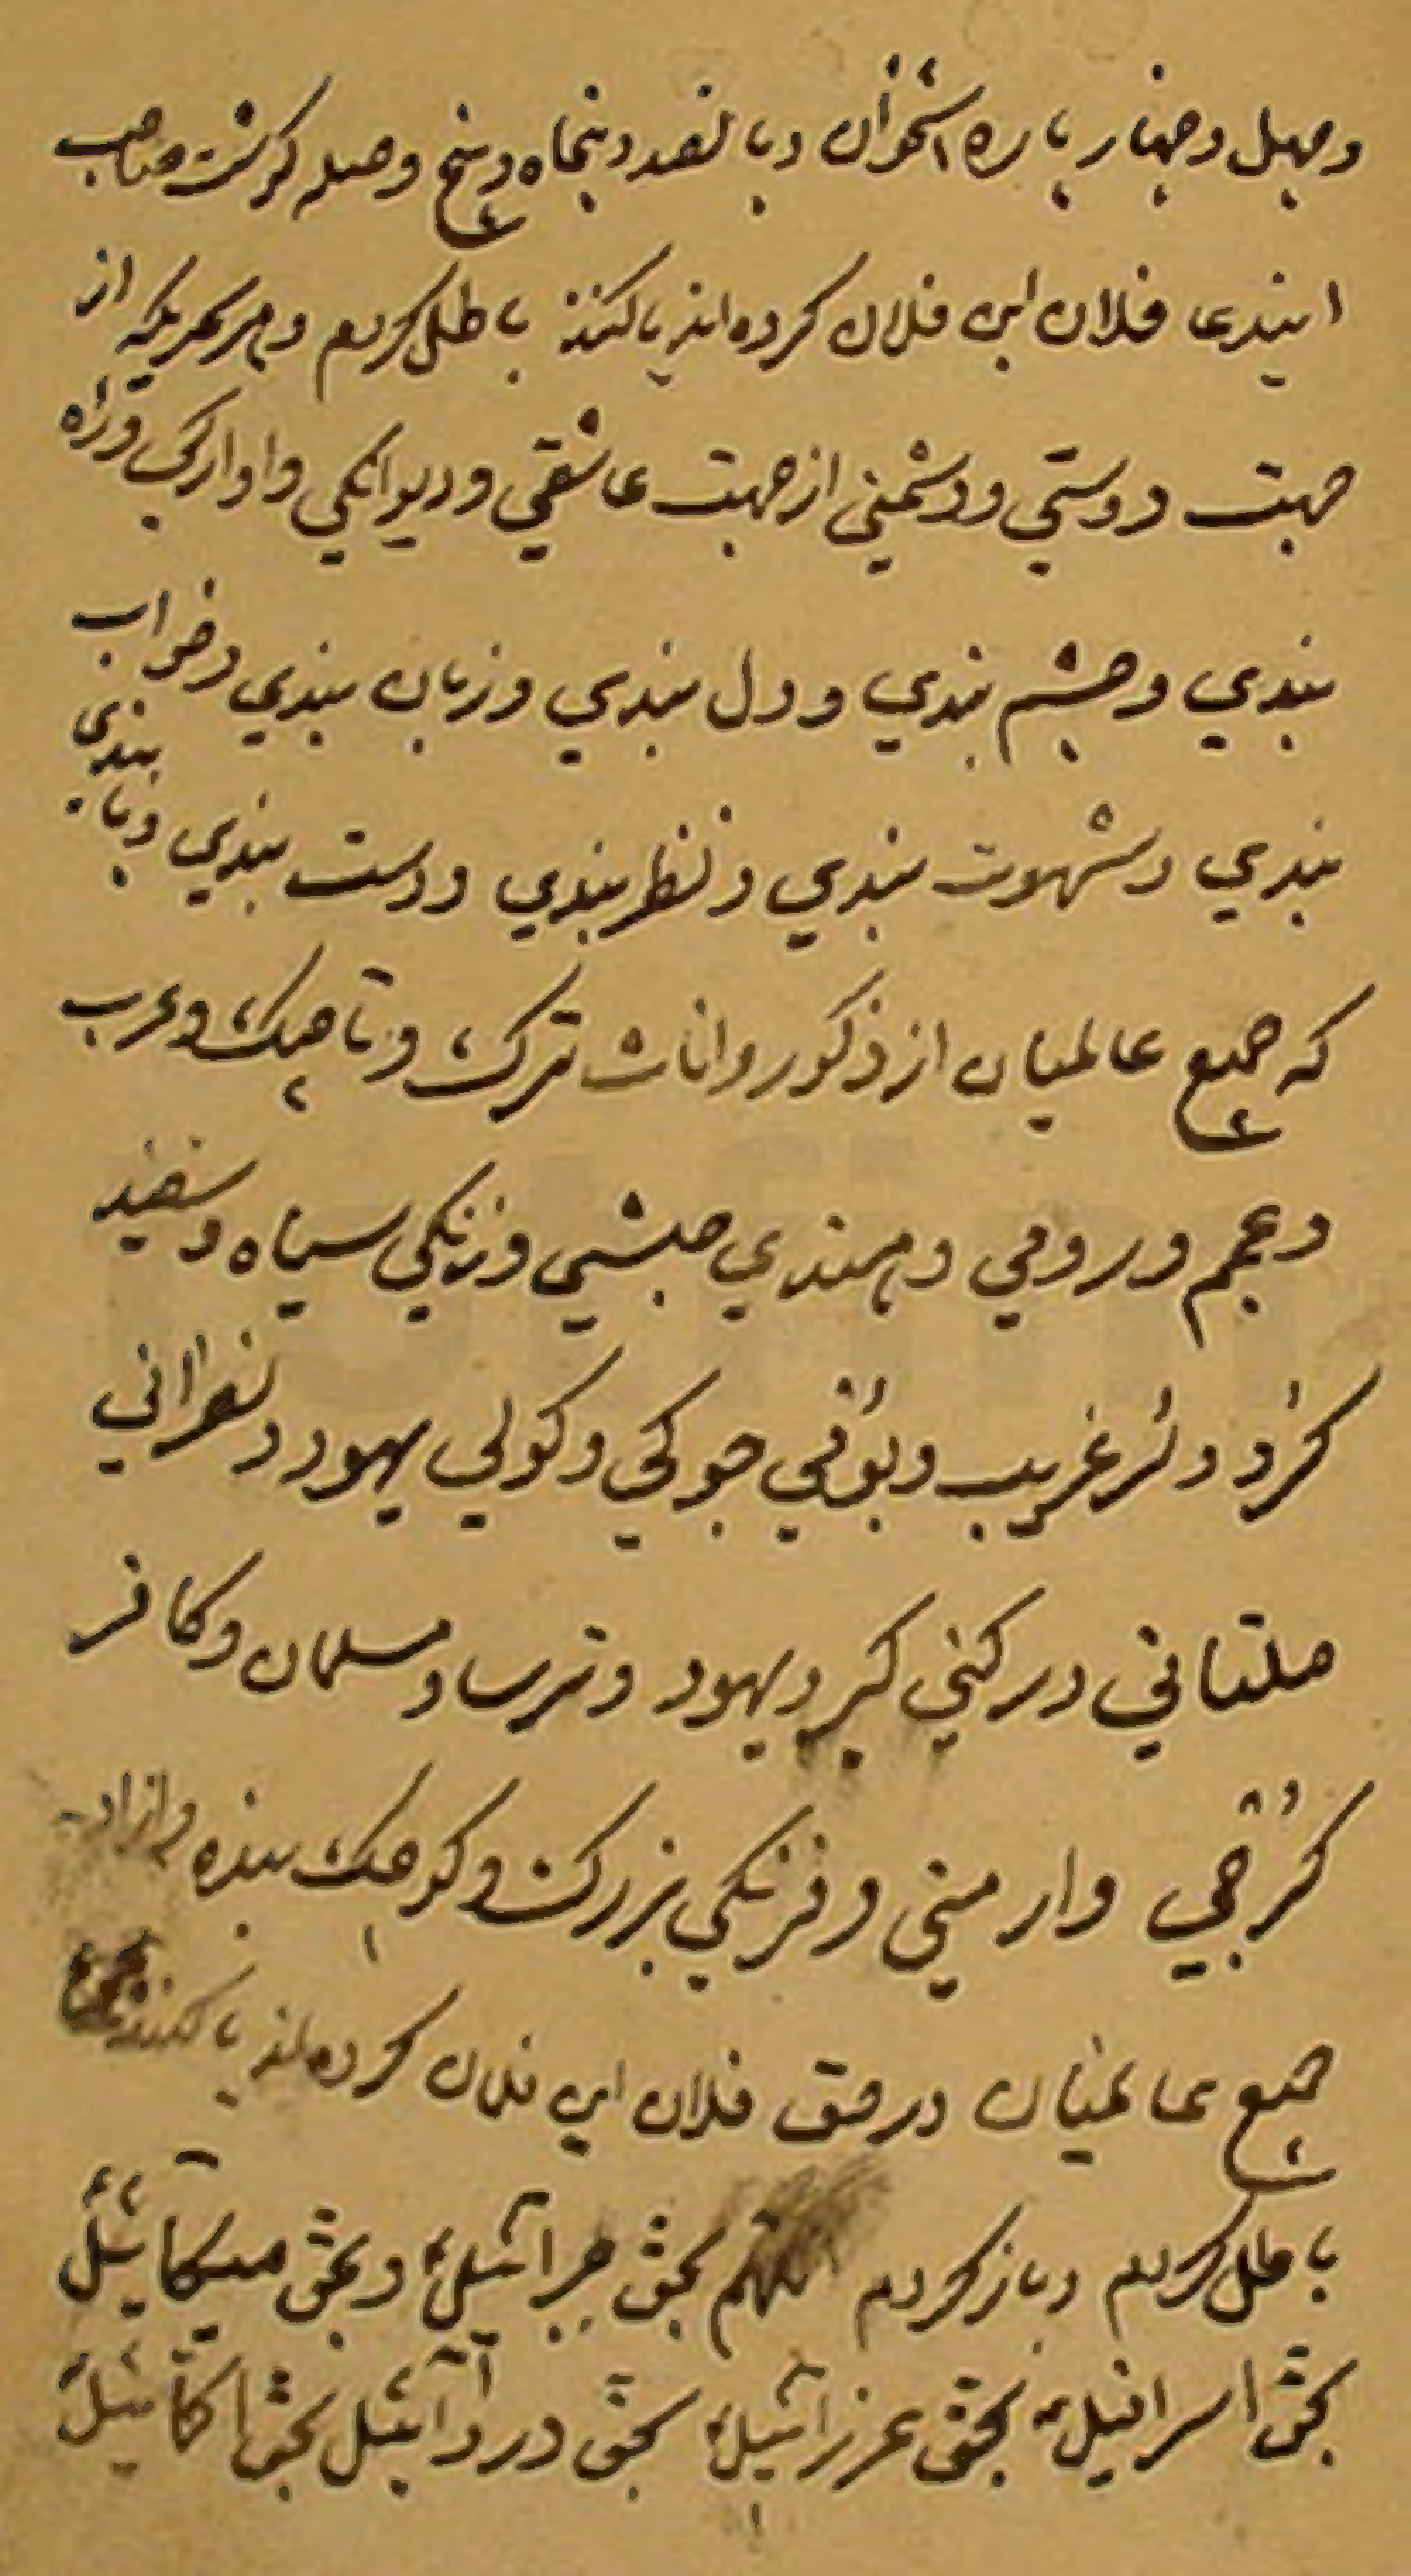 وچهل وچهار پاره استخوان و پانصد و پنجاه و پنج وصله گوشت صاحب
اینرعا فلان ابن فلان کرده اند یا کنند باطل کردم و هر سحریکه از
جهت دوستی و دشمنی از جهت عاشقی و دیوانکی و اوارکی و راه
بندی و چشم بندی و دل بندی و زبان بندی و خواب
بندی و شهوت بندی و نظر بندی و دست بندی و پای بندی
که جمیع عالمیان از ذکور و اناث ترک و تاجیک و عرب
و عجم و رومی و هندی حبشی و زنکی سیاه و سفید
کرد و لر غریب و بومی جوکی و کولی یهود و نصرانی
ملتانی کبر و یهود و ترسا و مسلمان و کافر
کرجی و ارمنی و فرنکی بزرک و کوچک بنده و ازاد
جمیع عالمیان در حق فلان ابن فلان کرده اند یا کنند
باطل کردم و باز کردم بحق جبرائیل و بحق میکائیل
بحق اسرافیل بحق عزرائیل بحق دردائیل بحق